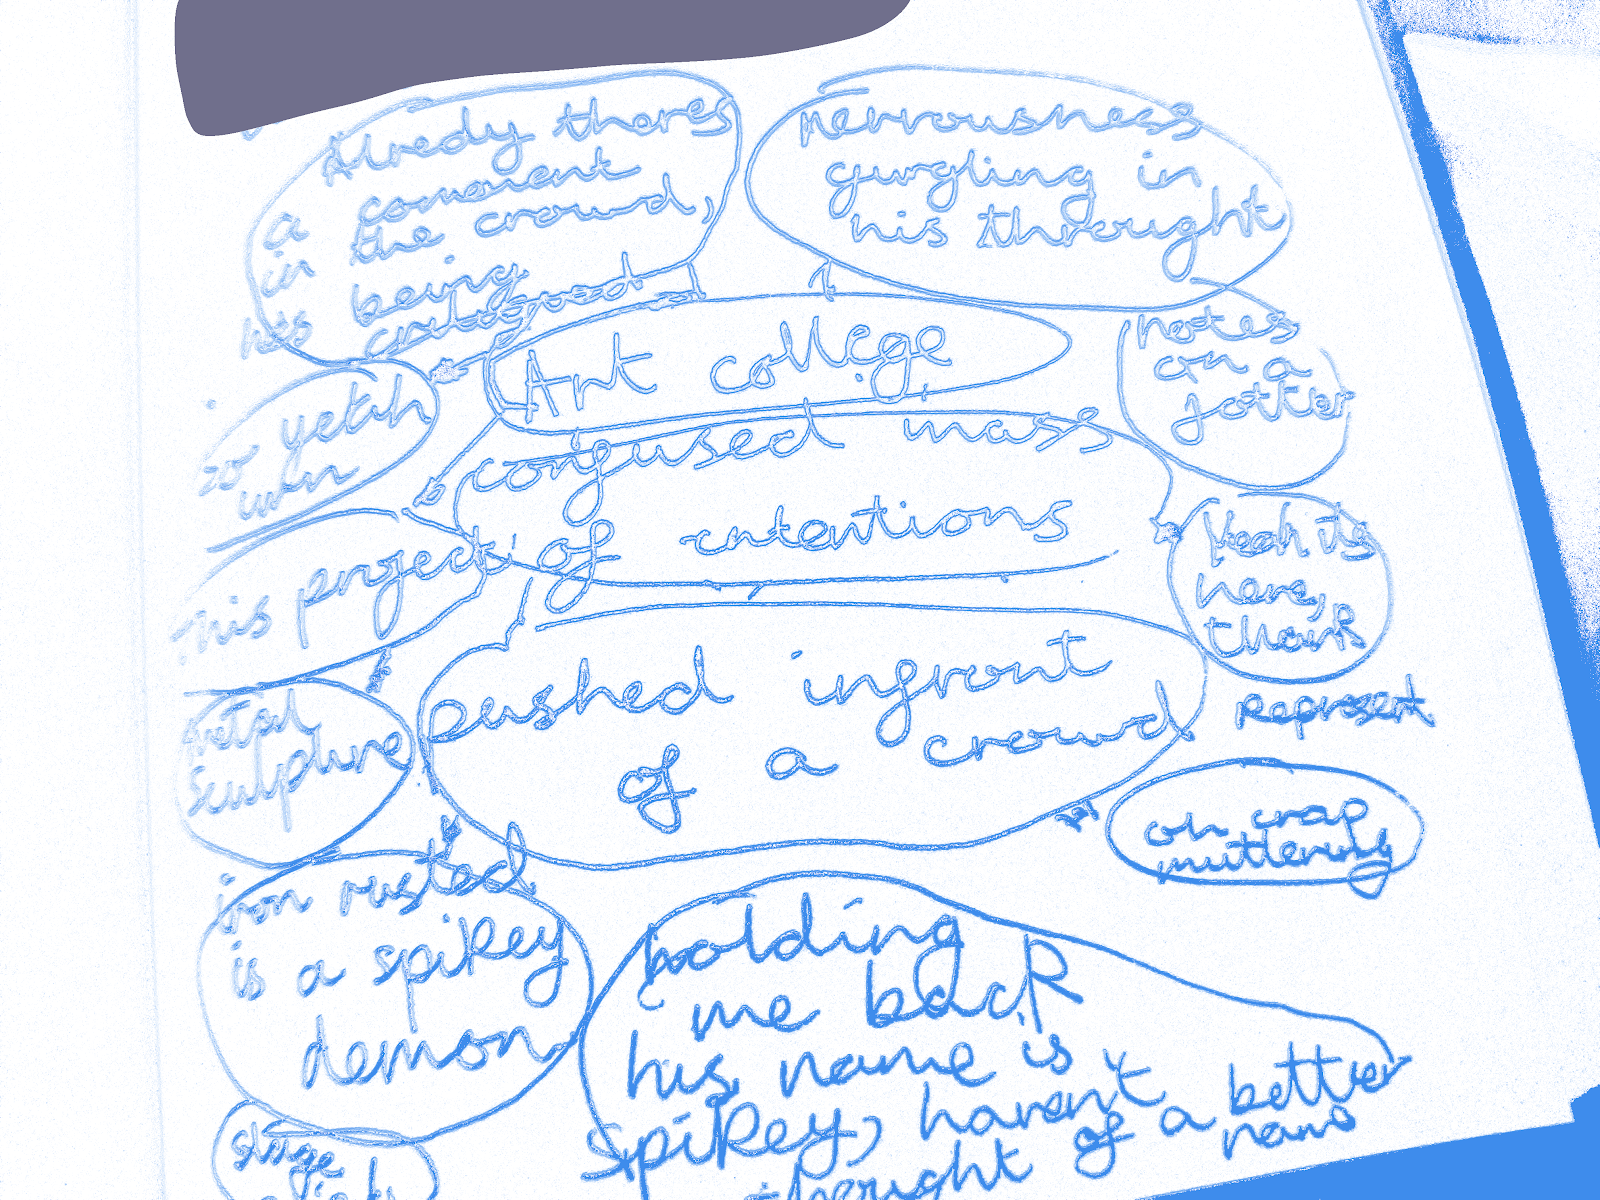 Alredy theres
a coment
in the crowd,
his being
nervousness
gurgling in
his throught
Art college
notes
on a
jotter
so yeah
confused mass
of intentions
This project
Yeah its
here,
thank
Represent
pushed infront
of a crowd
metal
sculpture
oh crap
muttering
iron rusted
is a spikey
demon
holding
me back
his name is
spikey, haven't
thought of a better
name